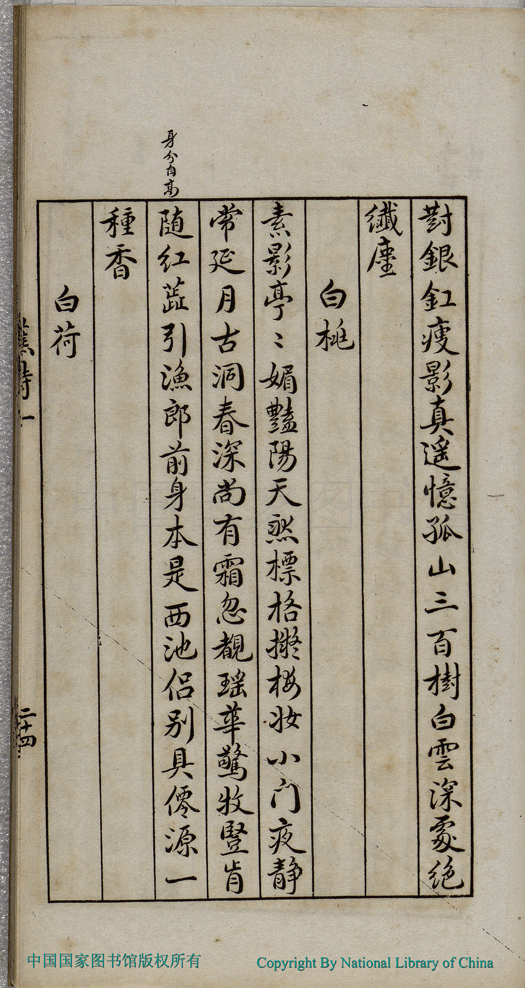 對銀釭瘦影真遥憶孤山三百樹白雲深處絶
纖塵
白桃
素影亭〻媚豔陽天然標格擬梅妝小门夜静
常延月古洞春深尚有霜忽覩瑶華驚牧豎肯
随红蕋引漁郎前身本是西池侣别具僊源一
種香
白荷
身分自高
蕉詩一
二十四
中国国家图书馆版权所有
Copyright By National Library of China